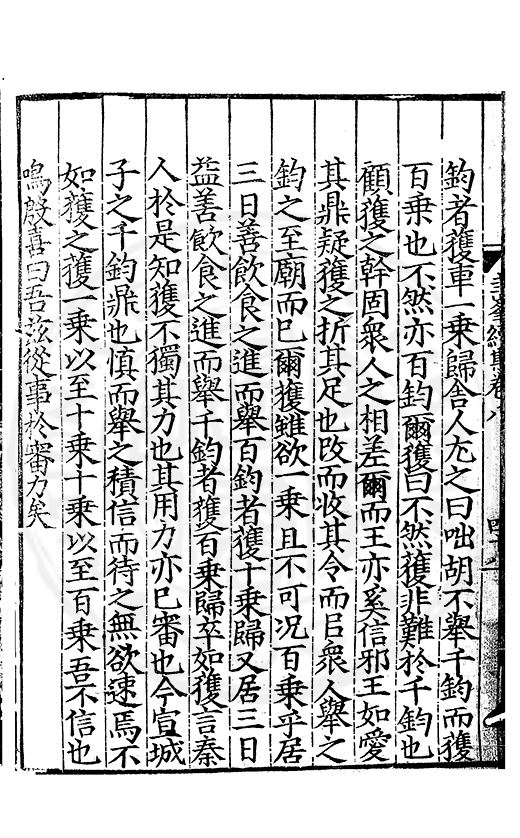 鈞者獲車一乗歸舎人尤之曰咄胡不舉千鈞而獲
百乗也不然亦百鈞爾獲曰不然獲非難於千鈞也
顧獲之幹固衆人之相差爾而王亦奚信邪王如愛
其鼎疑獲之折其足也改而收其令而召衆人舉之
鈞之至廟而巳爾獲雖欲一乗且不可况百乗乎居
三日善飲食之進而舉百鈞者獲十乗歸又居三日
益善飲食之進而舉千鈞者獲百乗歸卒如獲言秦
人於是知獲不獨其力也其用力亦巳審也今宣城
子之千鈞鼎也慎而舉之積信而待之無欲速焉不
如獲之獲一乗以至十乗十乗以至百乗吾不信也
鳴殷喜曰吾兹從事於審力矣